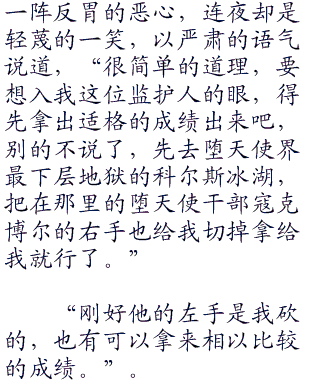 一阵反胃的恶心，连夜却是
轻蔑的一笑，以严肃的语气
说道，“很简单的道理，要
想入我这位监护人的眼，得
先拿出适格的成绩出来吧，
别的不说了，先去堕天使界
最下层地狱的科尔斯冰湖，
把在那里的堕天使干部寇克
博尔的右手也给我切掉拿给
我就行了。”
“刚好他的左手是我砍
的，也有可以拿来相以比较
的成绩。”。